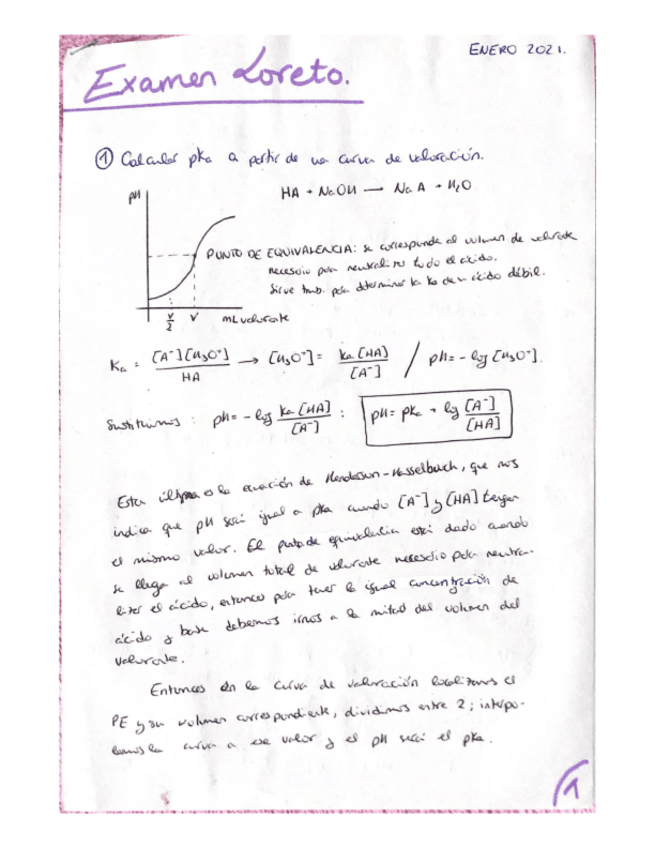 ENERO 2021.
Examen Loreto.
① Calcular pka a partir de una curva de valoración.
pH
HA + NaOH → NaA + H₂O
PUNTO DE EQUIVALENCIA: se corresponde al volumen de valorante
necesario para neutralizar todo el ácido.
Sirve tamb. para determinar la Ka de un ácido débil.
V/2 V mL valorante
Ka = [A⁻][H₃O⁺]/HA → [H₃O⁺] = Ka [HA]/[A⁻] / pH = - log [H₃O⁺].
Sustituimos : pH = - log Ka [HA]/[A⁻] : pH = pKa + log [A⁻]/[HA]
Esta última es la ecuación de Henderson-Hasselbach, que nos
indica que pH será igual a pka cuando [A⁻] y [HA] tengan
el mismo valor. El punto de equivalencia está dado cuando
se llega al volumen total de valorante necesario para neutra-
lizar el ácido, entonces para tener la igual concentración de
ácido y base debemos irnos a la mitad del volumen del
valorante.
Entonces en la curva de valoración localizamos el
PE y su volumen correspondiente, dividimos entre 2; interpo-
lamos la curva a ese valor y el pH será el pka.
1